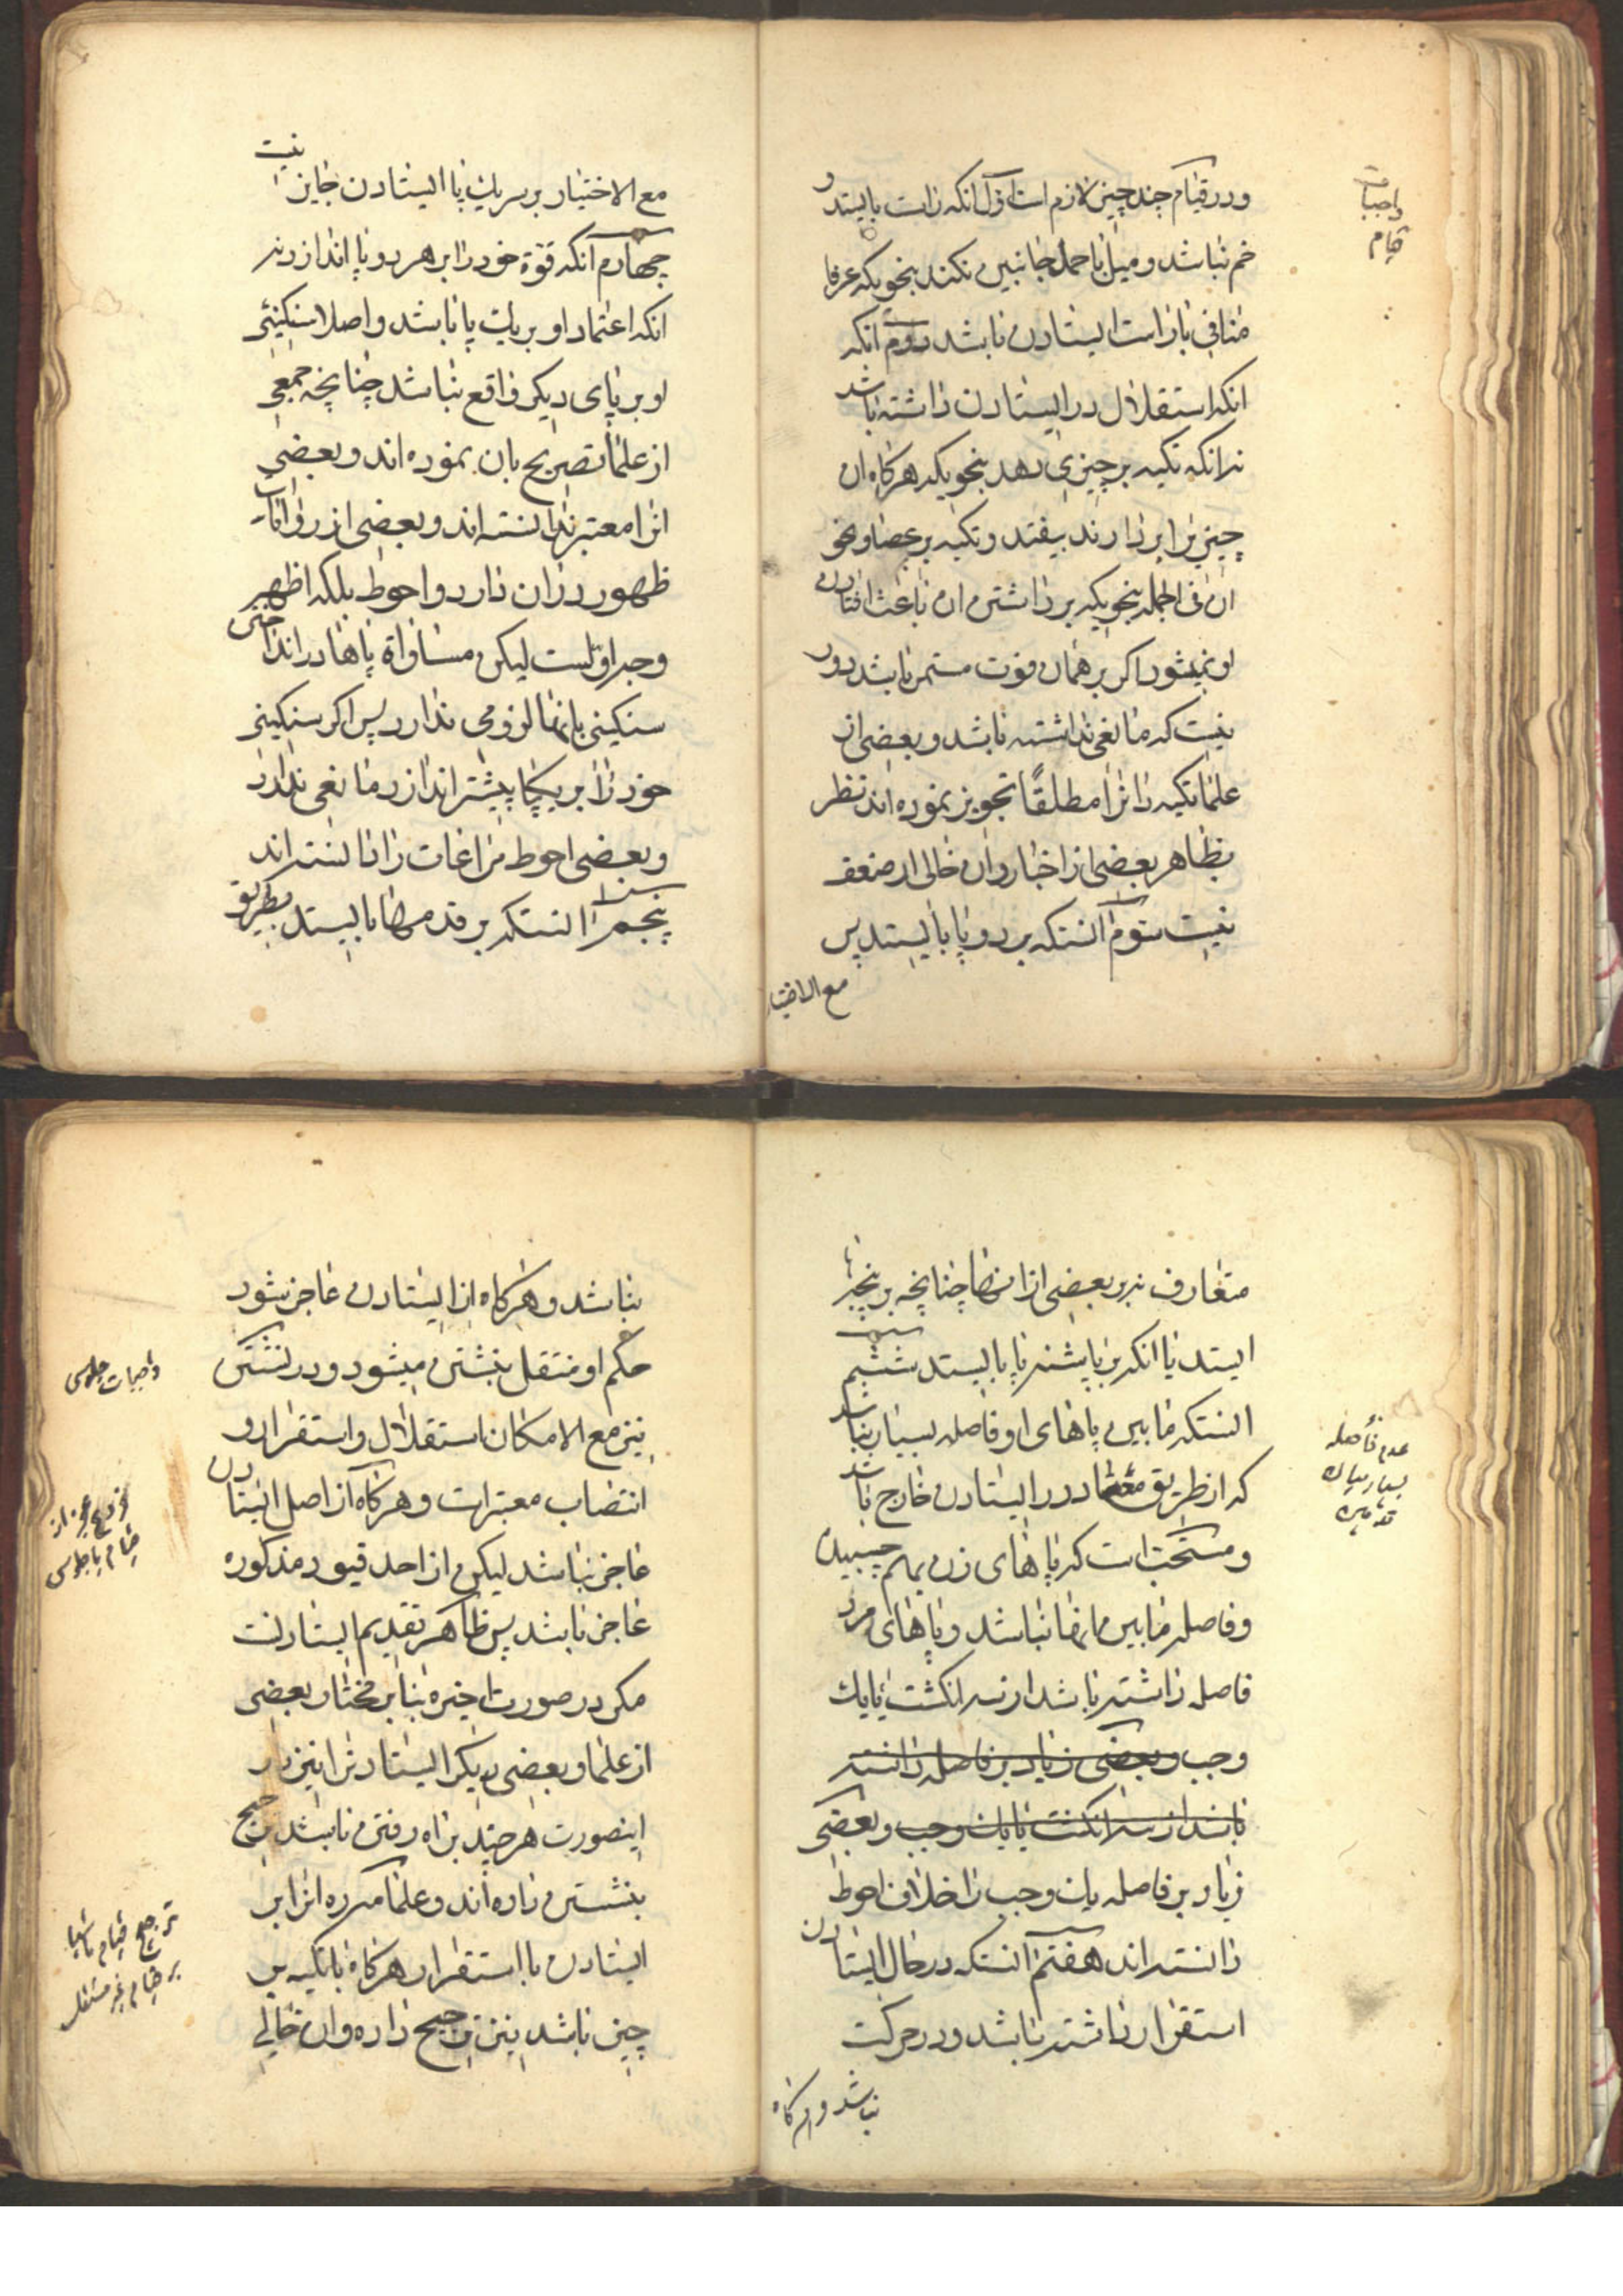 و در قیام چند چیز لازم است اول انکه راست بایستد و
خم نباشد و میل باحد جانبین نکند بنحویکه عرفا
منافی با راست ایستادن باشد دوم انکه
انکه استقلال در ایستادن داشته باشد
نه انکه تکیه بر چیزی دهد بنحویکه هرکاه ان
چیز را بردارند بیفتد و تکیه بر عصا و نحو
ان فی الجمله بنحویکه برداشتن ان باعث افتادن
او نمیشود اکر بر همان قوت مستمر باشد دور
نیست که مانعی نداشته باشد و بعضی از
علما تکیه دانرا مطلقًا تجویز نموده اند نظر
بظاهر بعضی از اخبار و ان خالی از ضعف
نیست سوم انستکه بر دو پا بایستد پس
مع الاختیار
واجبات
قیام
مع الاختیار بر سر یك پا ایستادن جایز نیست
چهارم آنکه قوّة خود را بر هر دو پا اندازد نه
انکه اعتماد او بر یك پا باشد و اصلا سنکینی
او بر پای دیکر واقع نباشد چنانچه جمعی
از علما تصریح بان نموده اند و بعضی
انرا معتبر ندانسته اند و بعضی از روایات
ظهور در ان دارد و احوط بلکه اظهر
وجه اولست لیکن مساواة پاها در انداختن
سنکینی بانها لزومی ندارد پس اکر سنکینی
خود را بر یکپا بیشتر اندازد مانعی ندارد
و بعضی احوط مراعات را دانسته اند
پنجم انستکه بر قدمها بایستد بطریق
متعارف نه بر بعضی از انها چنانچه بر پنجه‌ها
ایستد یا انکه بر پاشنه پا بایستد ششم
انستکه مابین پاهای او فاصله بسیار نباشد
که از طریق معتاد در ایستادن خارج باشد
و مستحبّ است که پاهای زن بهم چسبیده
و فاصله مابین انها نباشد و پاهای مرد
فاصله داشته باشد از سه انکشت تا یك
وجب و بعضی زیاد بر فاصله دانسته
باشد از سه انکشت تا یك وجب و بعضی
زیاد بر فاصله یك وجب را خلاف احوط
دانسته اند هفتم انستکه در حال ایستادن
استقرار داشته باشد و در حرکت
نباشد و هرکاه
عدم فاصله
بسیار میان
قدمین
نباشد و هرکاه از ایستادن عاجز شود
حکم او منتقل بنشستن میشود و در نشستن
نیز مع الامکان استقلال و استقرار و
انتصاب معتبر است و هرکاه از اصل ایستادن
عاجز نباشد لیکن از احد قیود مذکوره
عاجز باشد پس ظاهر تقدیم ایستادنست
مکر در صورت اخیره بنابر مختار بعضی
از علما و بعضی دیکر ایستادنرا نیز در
اینصورت هرچند براه رفتن باشد ترجیح
بنشستن داده اند و علامه ره انرا بر
ایستادن با استقرار هرکاه با تکیه بر
چیز باشد نیز ترجیح داده و ان خالی
واجبات جلوس
عجز از
قیام یا جلوس
ترجیح قیام
بر قیام غیر مستقل